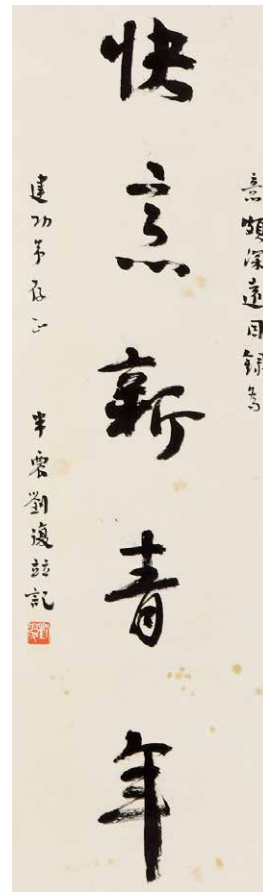 意頗深遠因錄為
快意新青年
建功弟存正 半農劉復竝記